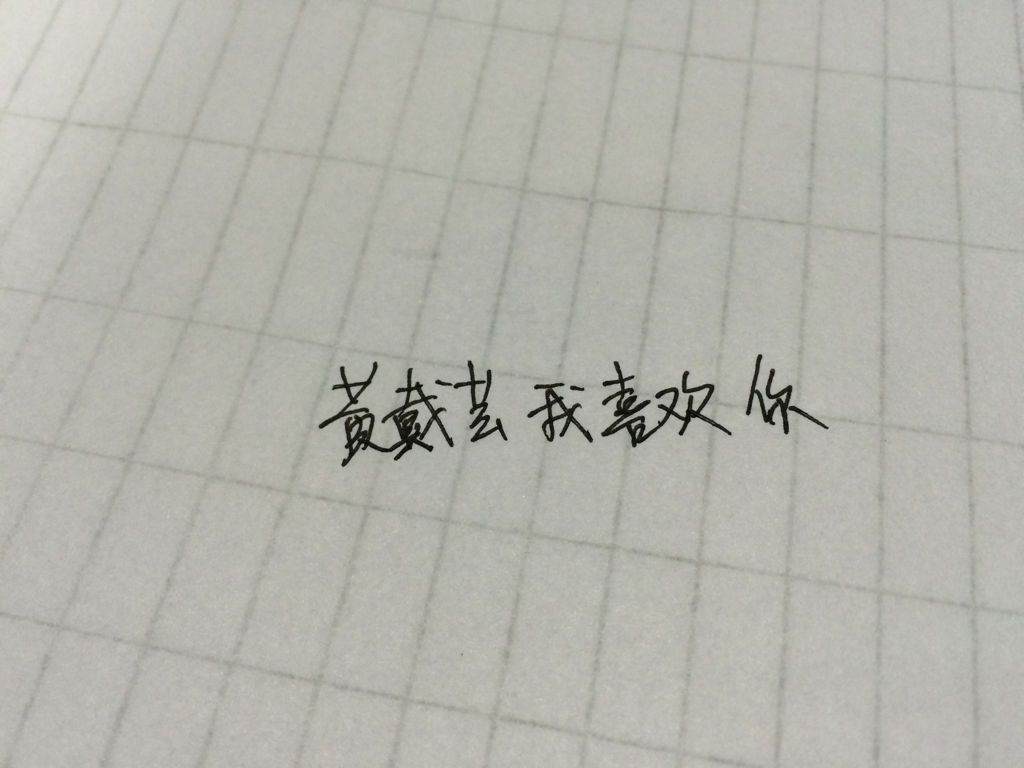 黄戴芸我喜欢你